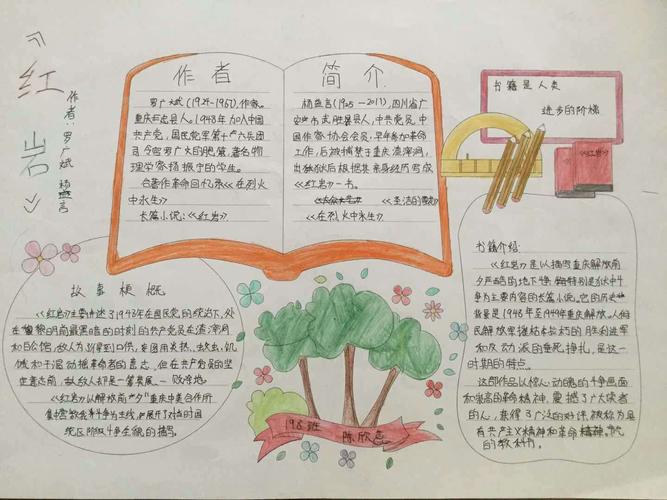 《红岩》
作者:罗广斌 杨益言
作者
罗广斌(1924-1967),作家。
重庆忠县人。1948年加入中国
共产党,国民党军第十六兵团
司令官罗广文的胞弟,著名物
理学家杨振宁的学生。
合著革命回忆录《在烈火
中永生》
长篇小说:《红岩》
简介
杨益言(1925-2017),四川省广
安市武胜县人,中共党员,
中国作家协会会员,早年参加革命
工作,后被捕禁于重庆渣滓洞,
出狱后根据其亲身经历写成
《红岩》一书。
《圣洁的
《在烈火中永生》
书籍是人类
进步的阶梯
《红岩》
故事梗概
《红岩》主要讲述了1948年在国民党的统治下,处
在黎明前最黑暗的时刻的共产党员在渣滓洞
和白公馆,敌人为了得到口供,
饿和干渴动摇革命者的意志,但在共产党员的坚
定意志前,敌人却是一筹莫展
《红岩》以解放前夕重庆中美合作所
集中营敌我斗争为主线,展开了对当时国
统区阶级斗争全貌的描写。
书籍介绍:
《红岩》是以描写重庆解放前
夕严酷的地下斗争,特别是狱中斗
争为主要内容的长篇小说。它的历史
背景是1948年至1949年重庆解放。人
民解放军摧枯拉朽的胜利进军
和反动派的垂死挣扎,是这一
时期的特点。
这部作品以惊心动魄的斗争画面
和崇高的革命精神,震撼了广大读者
的心,获得了广泛的好评,被称为是
有共产主义精神和革命
的教科书。
198班 陈欣